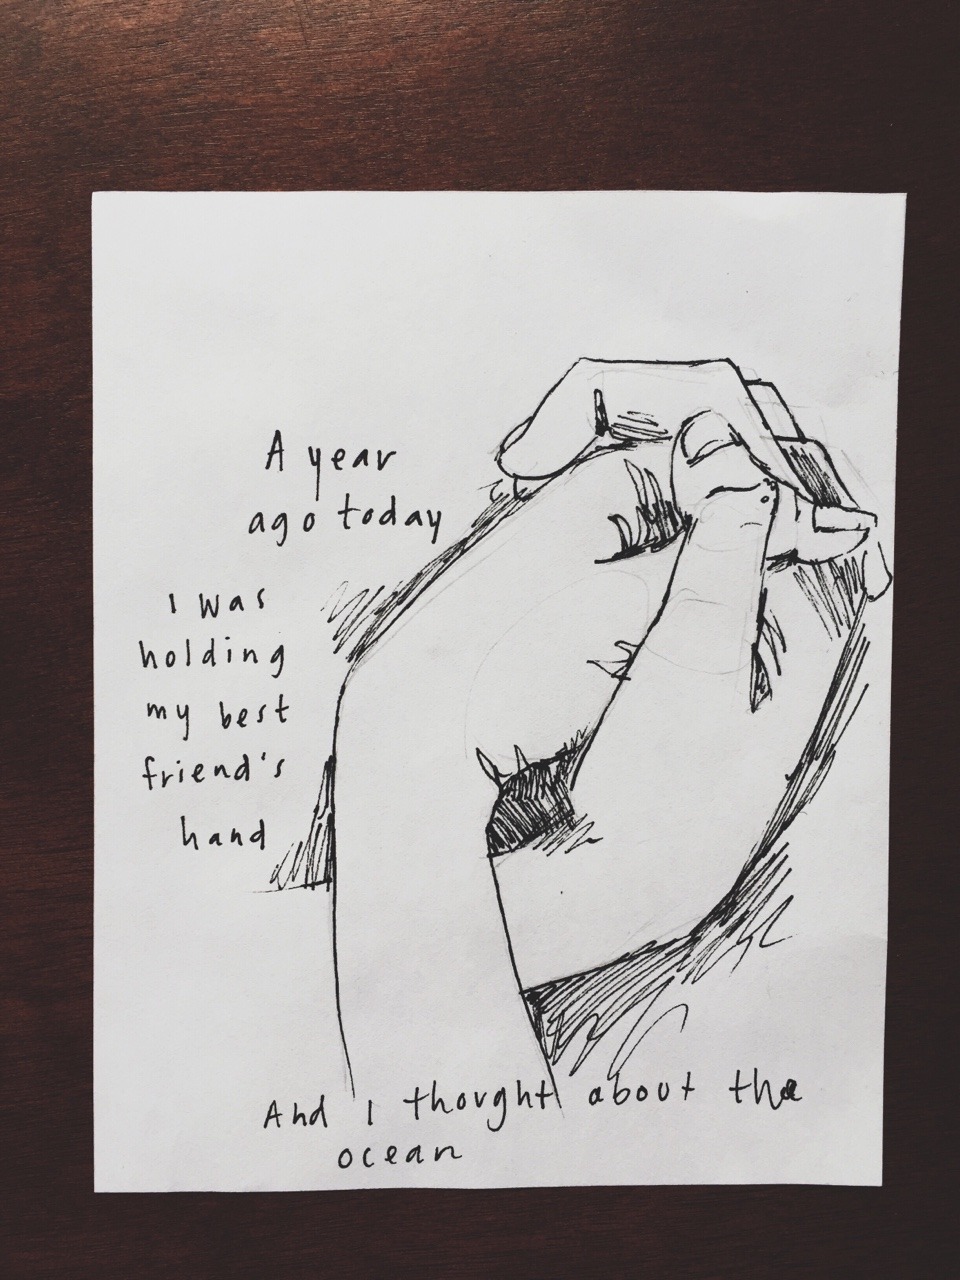 A year
ago today
I was
holding
my best
friend's
hand
And I thought about the
ocean